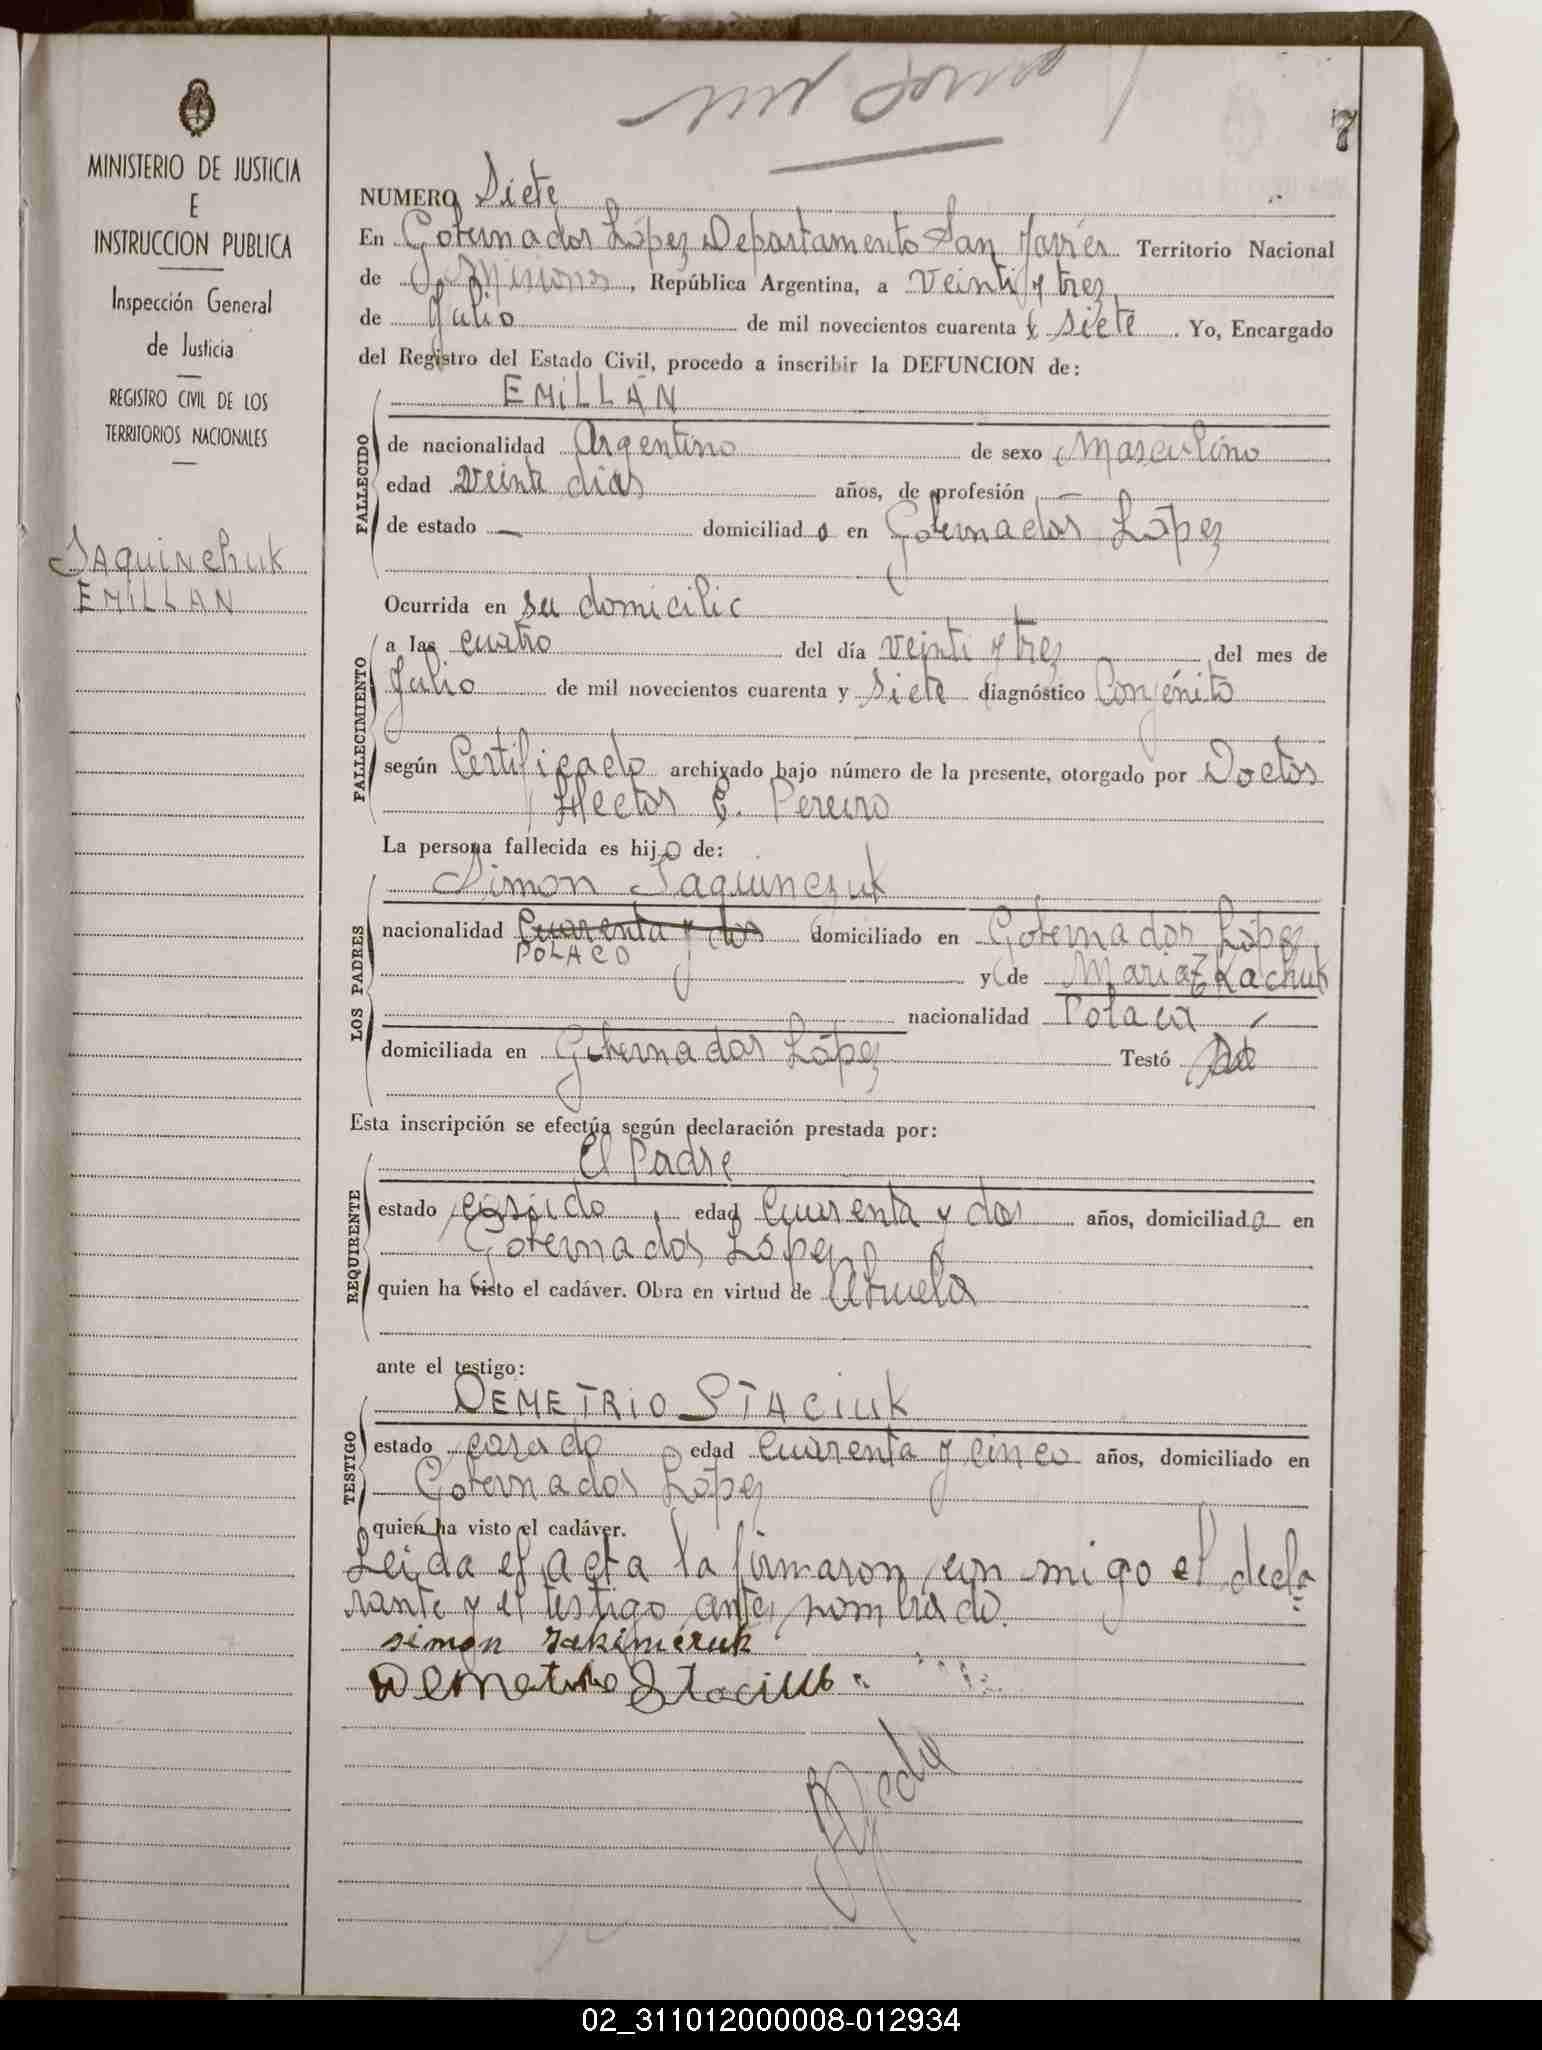 7
MINISTERIO DE JUSTICIA
E
INSTRUCCION PUBLICA
Inspección General
de Justicia
REGISTRO CIVIL DE LOS
TERRITORIOS NACIONALES
Jaquinchuk
EMILLAN
NUMERO Siete
En Gobernador López Departamento San Javier Territorio Nacional
de Misiones, República Argentina, a veinti y tres
de Julio de mil novecientos cuarenta y siete. Yo, Encargado
del Registro del Estado Civil, procedo a inscribir la DEFUNCION de:
EMILLAN
FALLECIDO
de nacionalidad Argentino de sexo Masculino
edad veinte dias años, de profesión —
de estado — domiciliado en Gobernador López
Ocurrida en su domicilio
FALLECIMIENTO
a las cuatro del día veinti y tres del mes de
Julio de mil novecientos cuarenta y siete diagnóstico Conjénito
según Certificado archivado bajo número de la presente, otorgado por Doctor
Hector C. Pereiro
La persona fallecida es hijo de:
LOS PADRES
Simon Jaquinczuk
nacionalidad Cuarenta y dos domiciliado en Gobernador López
POLACO
y de Maria Tkachuk
nacionalidad Polaca
domiciliada en Gobernador López Testó
Esta inscripción se efectúa según declaración prestada por:
REQUIRENTE
El Padre
estado casado, edad Cuarenta y dos años, domiciliado en
Gobernador López
quien ha visto el cadáver. Obra en virtud de
ante el testigo:
TESTIGO
DEMETRIO STACIUK
estado casado edad Cuarenta y cinco años, domiciliado en
Gobernador López
quien ha visto el cadáver.
Leida el acta la firmaron con migo el decla=
rante y el testigo antes nombrado.
simon
Demetrio
02_311012000008-012934